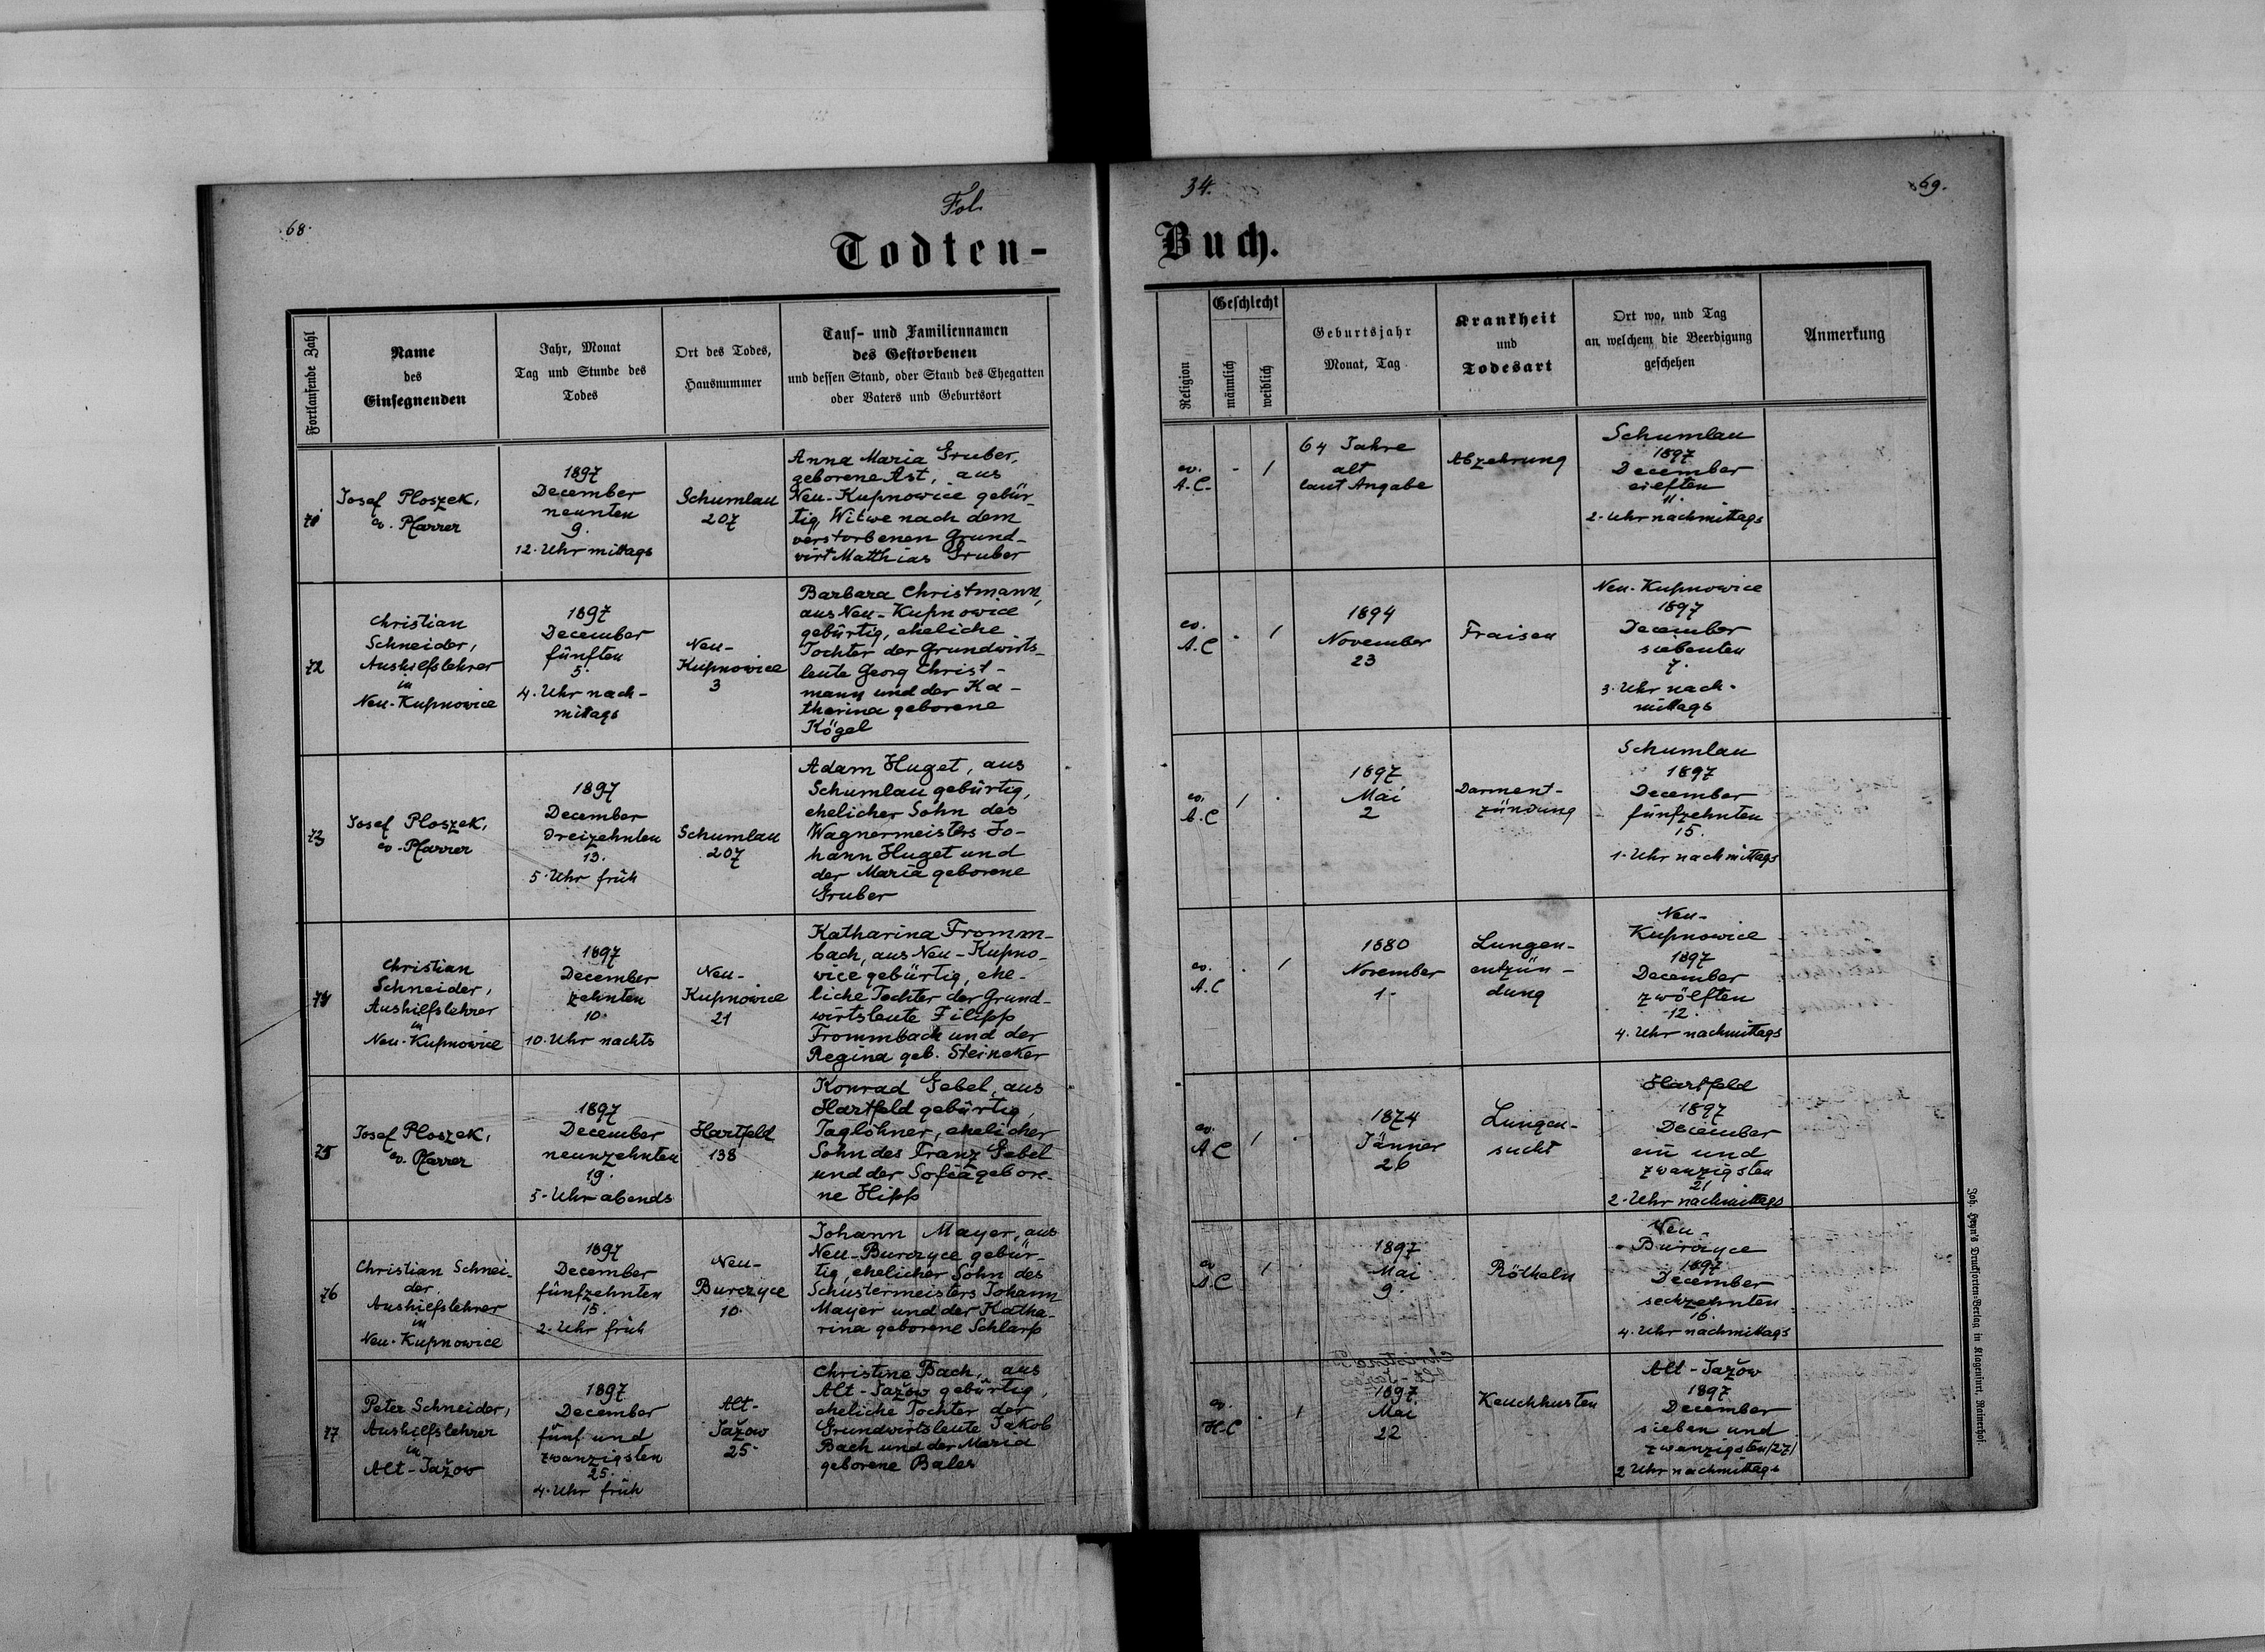 68.
Fol.
34.
69.
Todten-
Buch.
Fortlaufende Zahl
Name
des
Einsegnenden
Jahr, Monat
Tag und Stunde des
Todes
Ort des Todes,
Hausnummer
Tauf- und Familiennamen
des Gestorbenen
und dessen Stand, oder Stand des Ehegatten
oder Vaters und Geburtsort
Religion
Geschlecht
männlich
weiblich
Geburtsjahr
Monat, Tag
Krankheit
und
Todesart
Ort wo, und Tag
an welchem die Beerdigung
geschehen
Anmerkung
Josef Ploszek,
ev. Pfarrer
1897
December
neunten
9.
12. Uhr mittags
Schumlau
207
Anna Maria Gruber,
geborene Ast, aus
Neu-Kupnowice gebür-
tig, Witwe nach dem
verstorbenen Grund-
wirt Matthias Gruber
ev.
A.C.
-
1
64 Jahre
alt
laut Angabe
Abzehrung
Schumlau
1897
December
eilften
11.
2. Uhr nachmittags
72
Christian
Schneider,
Aushilfslehrer
in
Neu-Kupnowice
1897
December
fünften
5.
4. Uhr nach-
mittags
Neu-
Kupnowice
3
Barbara Christmann,
aus Neu-Kupnowice
gebürtig, eheliche
Tochter der Grundwirts-
leute Georg Christ-
mann und der Ka-
tharina geborene
Kögel
ev.
A.C
-
1
1894
November
23
Fraisen
Neu-Kupnowice
1897
December
siebenten
7.
3. Uhr nach-
mittags
73
Josef Ploszek,
ev. Pfarrer
1897
December
dreizehnten
13.
5. Uhr früh
Schumlau
207
Adam Huget, aus
Schumlau gebürtig,
ehelicher Sohn des
Wagnermeisters Jo-
hann Huget und
der Maria geborene
Gruber
ev.
A.C
1
.
1897
Mai
2
Darment-
zündung
Schumlau
1897
December
fünfzehnten
15.
1. Uhr nachmittags
74
Christian
Schneider,
Aushilfslehrer
in
Neu-Kupnowice
1897
December
zehnten
10.
10. Uhr nachts
Neu-
Kupnowice
21
Katharina Fromm-
bach, aus Neu-Kupno-
wice gebürtig, ehe-
liche Tochter der Grund-
wirtsleute Filipp
Frommbach und der
Regina geb. Steineker
ev.
A.C
.
1
1880
November
1.
Lungen-
entzün-
dung
Neu-
Kupnowice
1897
December
zwölften
12.
4. Uhr nachmittags
75
Josef Ploszek,
ev. Pfarrer
1897
December
neunzehnten
19.
5. Uhr abends
Hartfeld
138
Konrad Gebel, aus
Hartfeld gebürtig,
Taglöhner, ehelicher
Sohn des Franz Gebel
und der Sofia gebore-
ne Hipp
ev.
A.C
1
.
1874
Jänner
26
Lungen-
sucht
Hartfeld
1897
December
ein und
zwanzigsten
21
2. Uhr nachmittags
76
Christian Schnei-
der,
Aushilfslehrer
in
Neu-Kupnowice
1897
December
fünfzehnten
15.
2. Uhr früh
Neu-
Burczyce
10.
Johann Mayer, aus
Neu-Burczyce gebür-
tig, ehelicher Sohn des
Schustermeisters Johann
Mayer und der Katha-
rina geborene Schlarp
ev
A.C
1
.
1897
Mai
9.
Rötheln
Neu-
Burczyce
1897
December
sechzehnten
16.
4. Uhr nachmittags
77
Peter Schneider,
Aushilfslehrer
in
Alt-Jažow
1897
December
fünf und
zwanzigsten
25.
4. Uhr früh
Alt-
Jažow
25.
Christine Bach, aus
Alt-Jažow gebürtig,
eheliche Tochter der
Grundwirtsleute Jakob
Bach und der Maria
geborene Bales
ev.
H.C
.
1
1897
Mai
22
Keuchhusten
Alt-Jažow
1897
December
sieben und
zwanzigsten /27/
2 Uhr nachmittags
Joh. Heyn's Drucksorten-Verlag in Klagenfurt, Rainerhof.